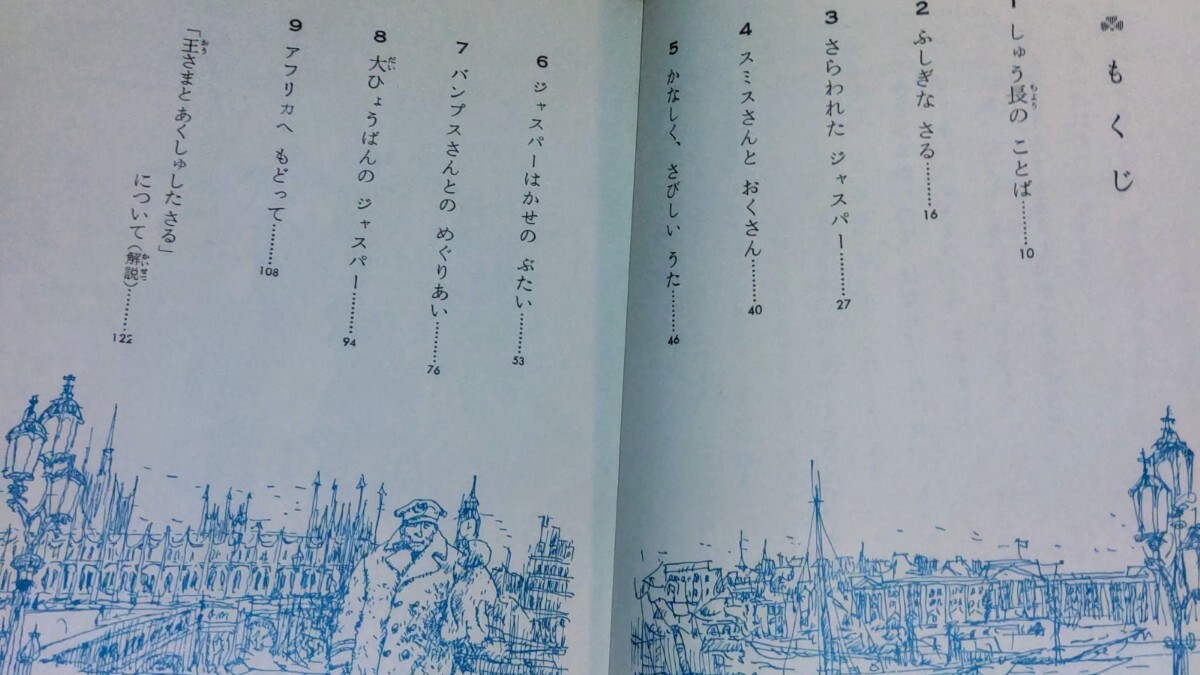 もくじ
1 しゅう長の ことば………10
2 ふしぎな さる………16
3 さらわれた ジャスパー………27
4 スミスさんと おくさん………40
5 かなしく、さびしい うた………46
6 ジャスパーはかせの ぶたい………53
7 バンプスさんとの めぐりあい………76
8 大ひょうばんの ジャスパー………94
9 アフリカへ もどって………108
「王さまとあくしゅしたさる」
について(解説)………122